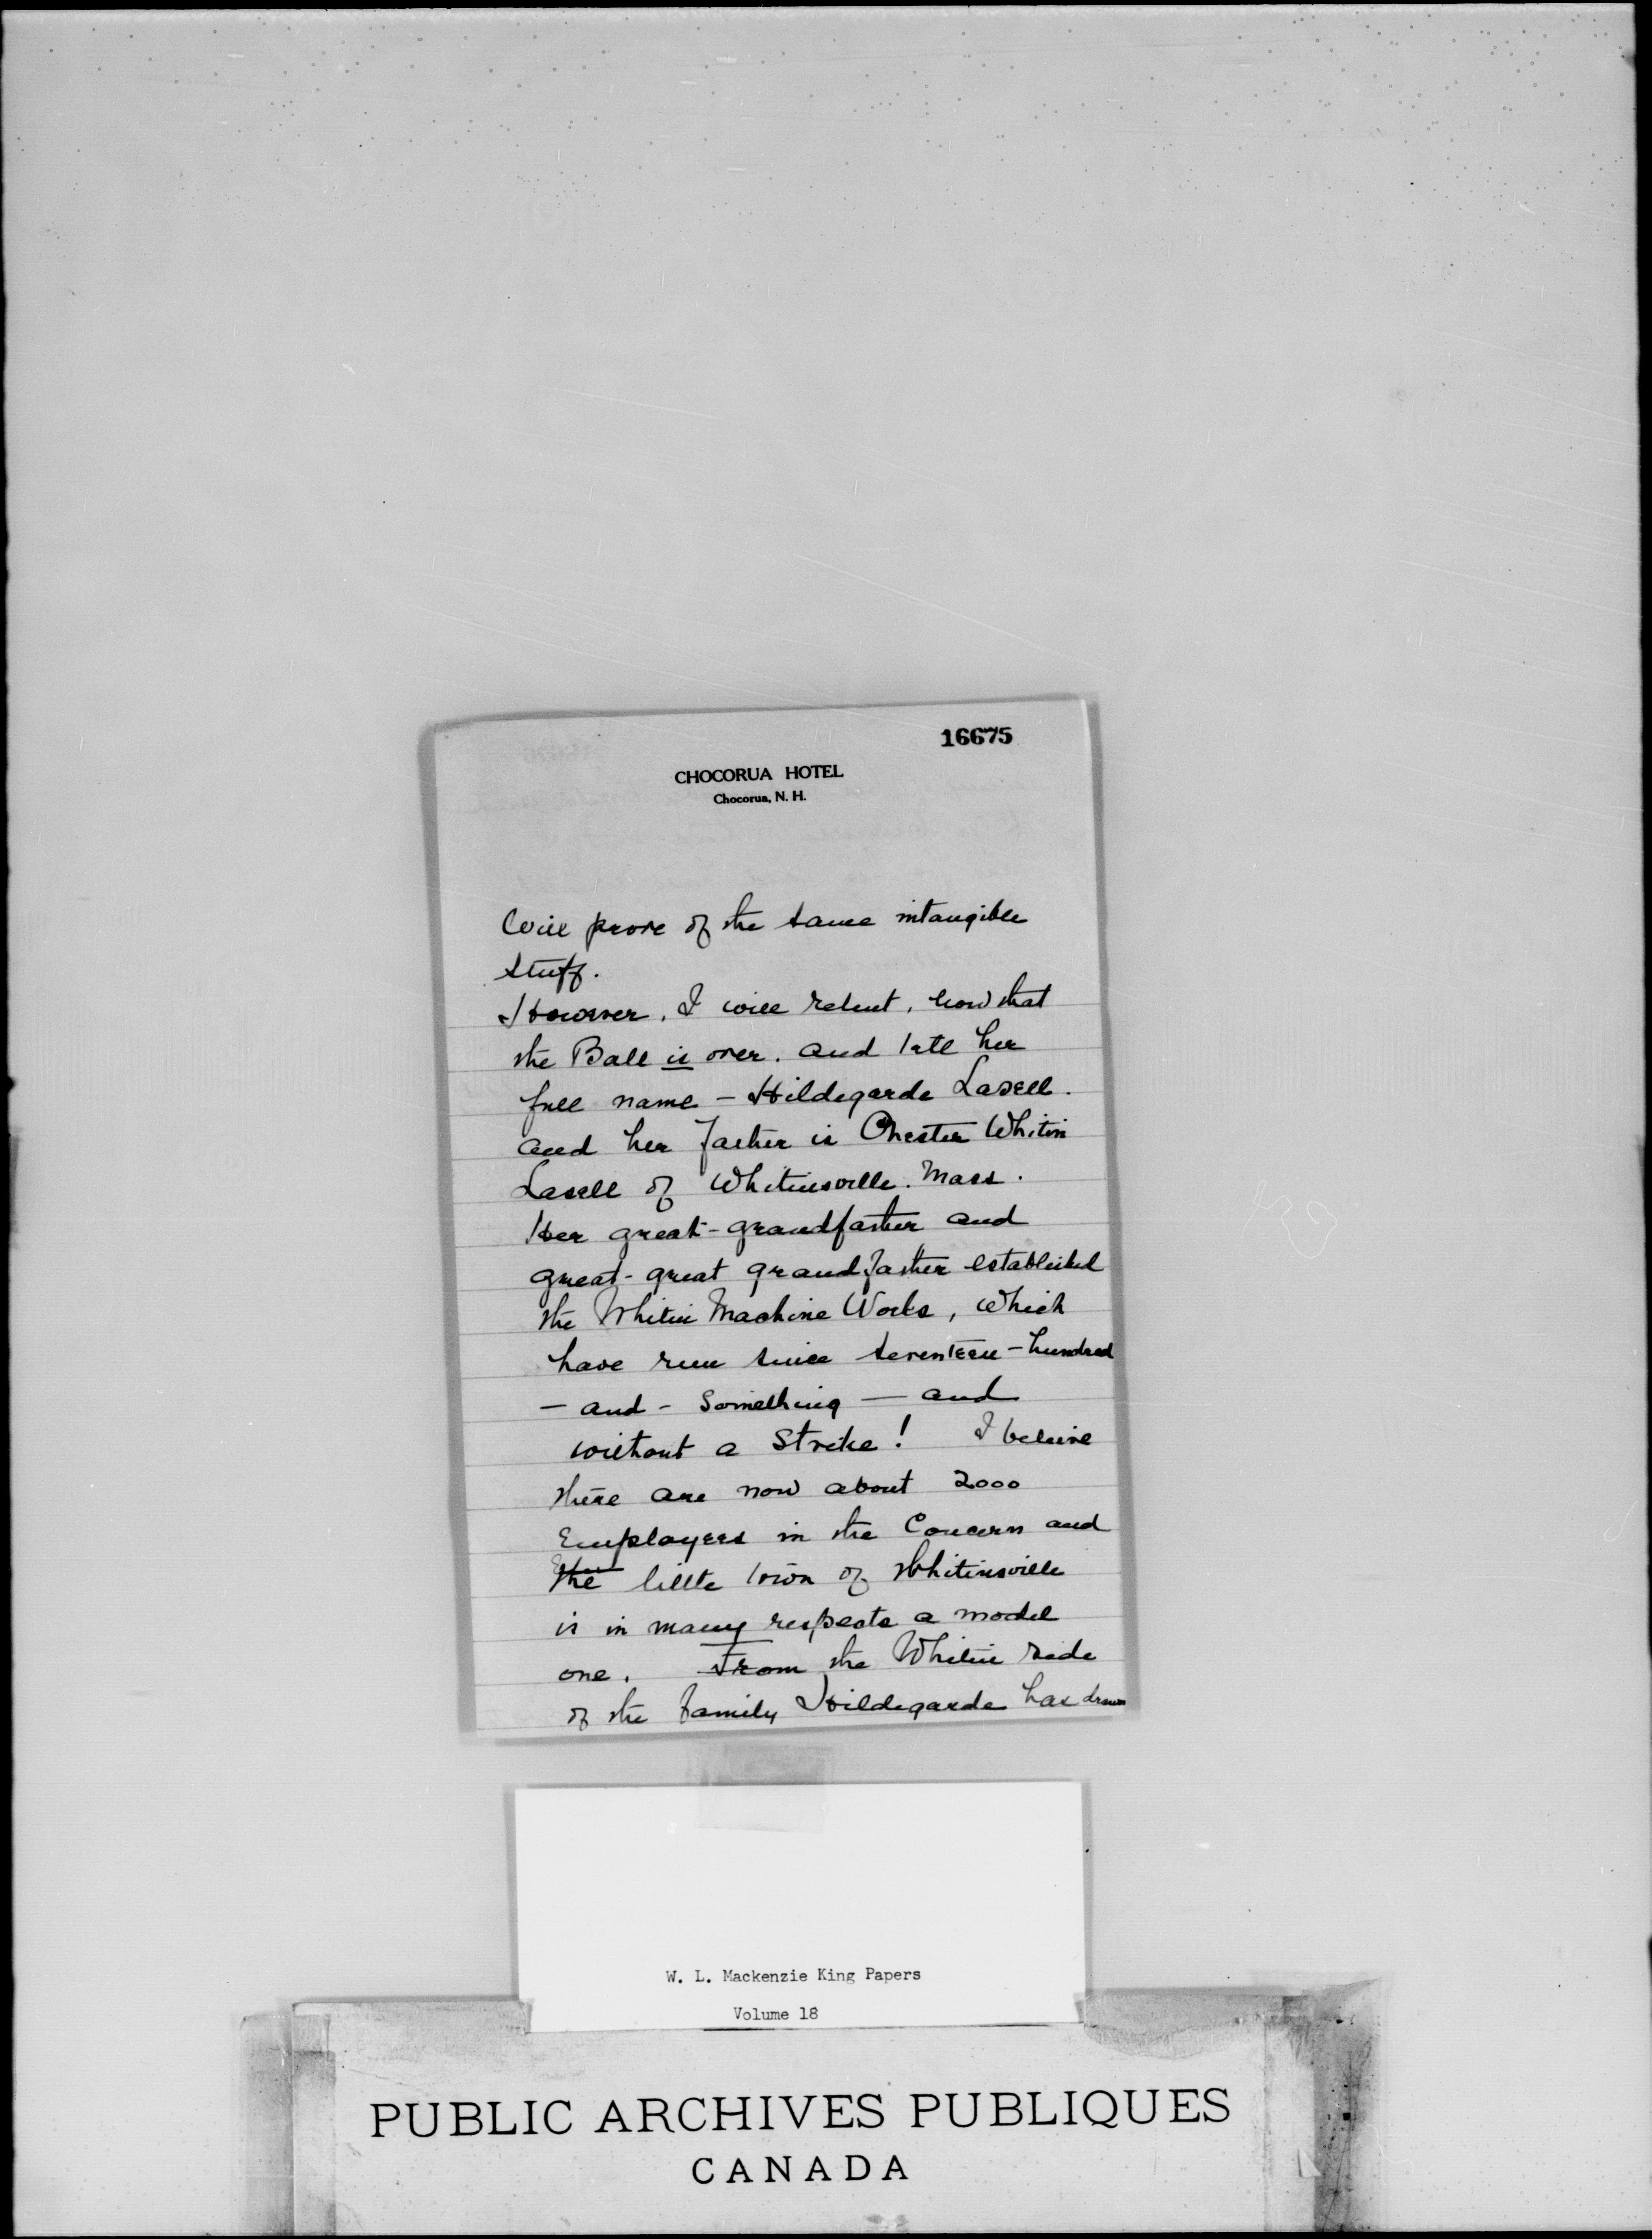 16675
CHOCORUA HOTEL
Chocorua, N. H.
Will prove of the same intangible
stuff.
However, I will relent, now that
the Ball is over. and tell her
full name – Hildegarde Lasell.
and her father is Chester Whitin
Lasell of Whitinsville. Mass.
Her great-grandfather and
great-great grandfather established
the Whitin Machine Works, which
have run since seventeen-hundred
– and – something — and
without a strike! I believe
there are now about 2000
Employees in the Concern and
the little town of Whitinsville
is in many respects a model
one. From the Whitin side
of the family Hildegarde has drawn
W. L. Mackenzie King Papers
Volume 18
PUBLIC ARCHIVES PUBLIQUES
CANADA